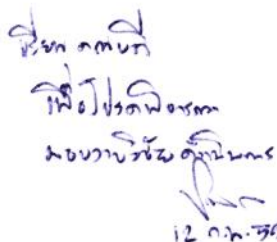 เรียน คณบดี
เพื่อโปรดพิจารณา
มอบงานวิจัย ดำเนินการ
12 ก.พ. 56